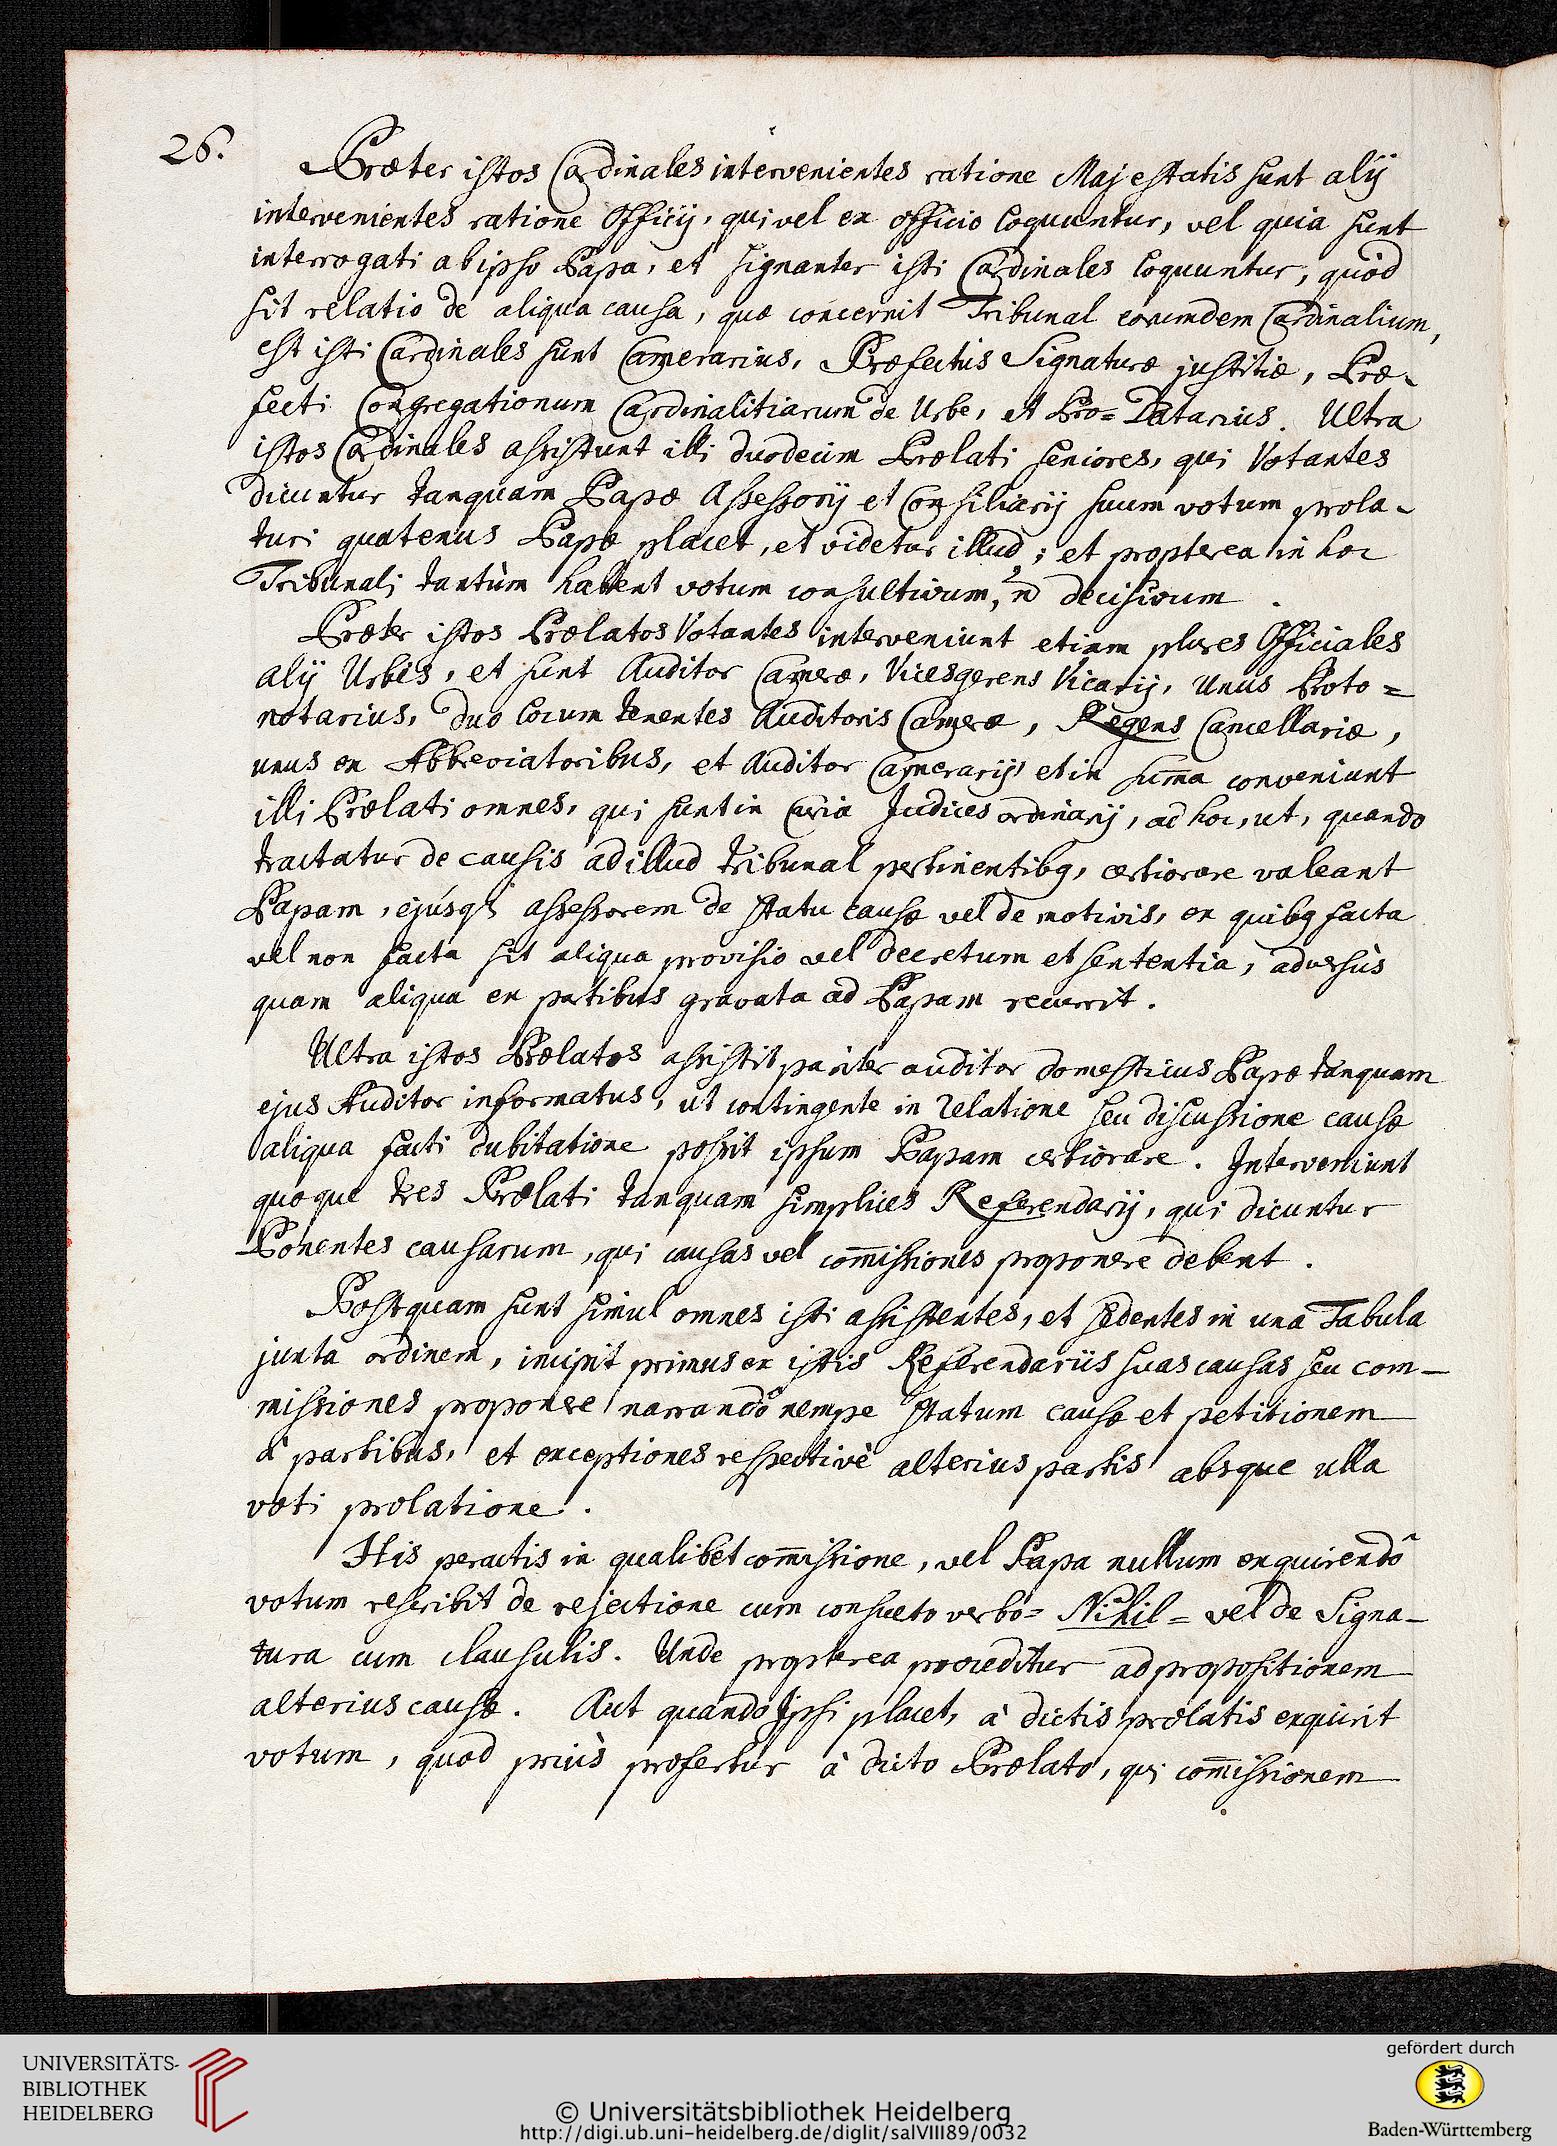 26.
Præter istos Cardinales intervenientes ratione Majestatis sunt alij
intervenientes ratione Officij, qui vel ex officio loquuntur, vel quia sunt
interrogati ab ipso Papa, et signanter isti Cardinales loquuntur, quòd
sit relatio de aliqua causa, quæ concernit Tribunal eorumdem Cardinalium,
est isti Cardinales sunt Camerarius, Præfectus Signaturæ justitiæ, Præ-
fecti Congregationum Cardinalitiarum de Urbe, et Pro=Datarius. Ultra
istos Cardinales assistunt illi duodecim Prælati seniores, qui Votantes
dicuntur tanquam Papæ Assessorij et Consiliarij suum votum prola-
turi quatenus Papæ placet, et videtur illud; et propterea in hoc
Tribunali tantùm habent votum consultivum, n̄ decisivum.
Præter istos Prælatos Votantes interveniunt etiam plures Officiales
alij Urbis, et sunt Auditor Cameræ, Vicesgerens Vicarij, Unus Proto=
notarius, duo locum tenentes Auditoris Cameræ, Regens Cancellariæ,
unus ex Abbreviatoribus, et Auditor Camerarij, et in sum̄a conveniunt
illi Prælati omnes, qui sunt in Curia Judices ordinarij, ad hoc, ut, quando
tractatur de causis ad illud tribunal pertinentibq, certiorare valeant
Papam, ejúsq; assessorem de statu causæ vel de motivis, ex quibq facta
vel non facta sit aliqua provisio vel decretum et sententia, adversùs
quam aliqua ex partibus gravata ad Papam recurrit.
Ultra istos Prælatos assistit pariter auditor domesticus Papæ tanquam
ejus Auditor informatus, ut contingente in relatione seu discussione causæ
aliqua facti dubitatione possit ipsum Papam certiorare. Interveniunt
quoque tres Prælati tanquam simplices Referendarij, qui dicuntur
Ponentes causarum, qui causas vel com̄issiones proponere debent.
Postquam sunt simul omnes isti assistentes, et sedentes in una Tabula
juxta ordinem, incipit primus ex istis Referendariis suas causas seu com-
missiones proponere narrando nempe statum causæ et petitionem
à partibus, et exceptiones respectivè alterius partis absque ulla
voti prolatione.
His peractis in qualibet com̄issione, vel Papa nullum exquirendo
votum rescribit de rejectione cum consueto verbo= Nihil= vel de Signa-
tura cum clausulis. Unde propterea proceditur ad propositionem
alterius causæ. Aut quando Ipsi placet, à dictis prælatis exquirit
votum, quod priùs profertur à dicto Prælato, qui com̄issionem
UNIVERSITÄTS-
BIBLIOTHEK
HEIDELBERG
© Universitätsbibliothek Heidelberg
http://digi.ub.uni-heidelberg.de/diglit/salVIII89/0032
gefördert durch
Baden-Württemberg